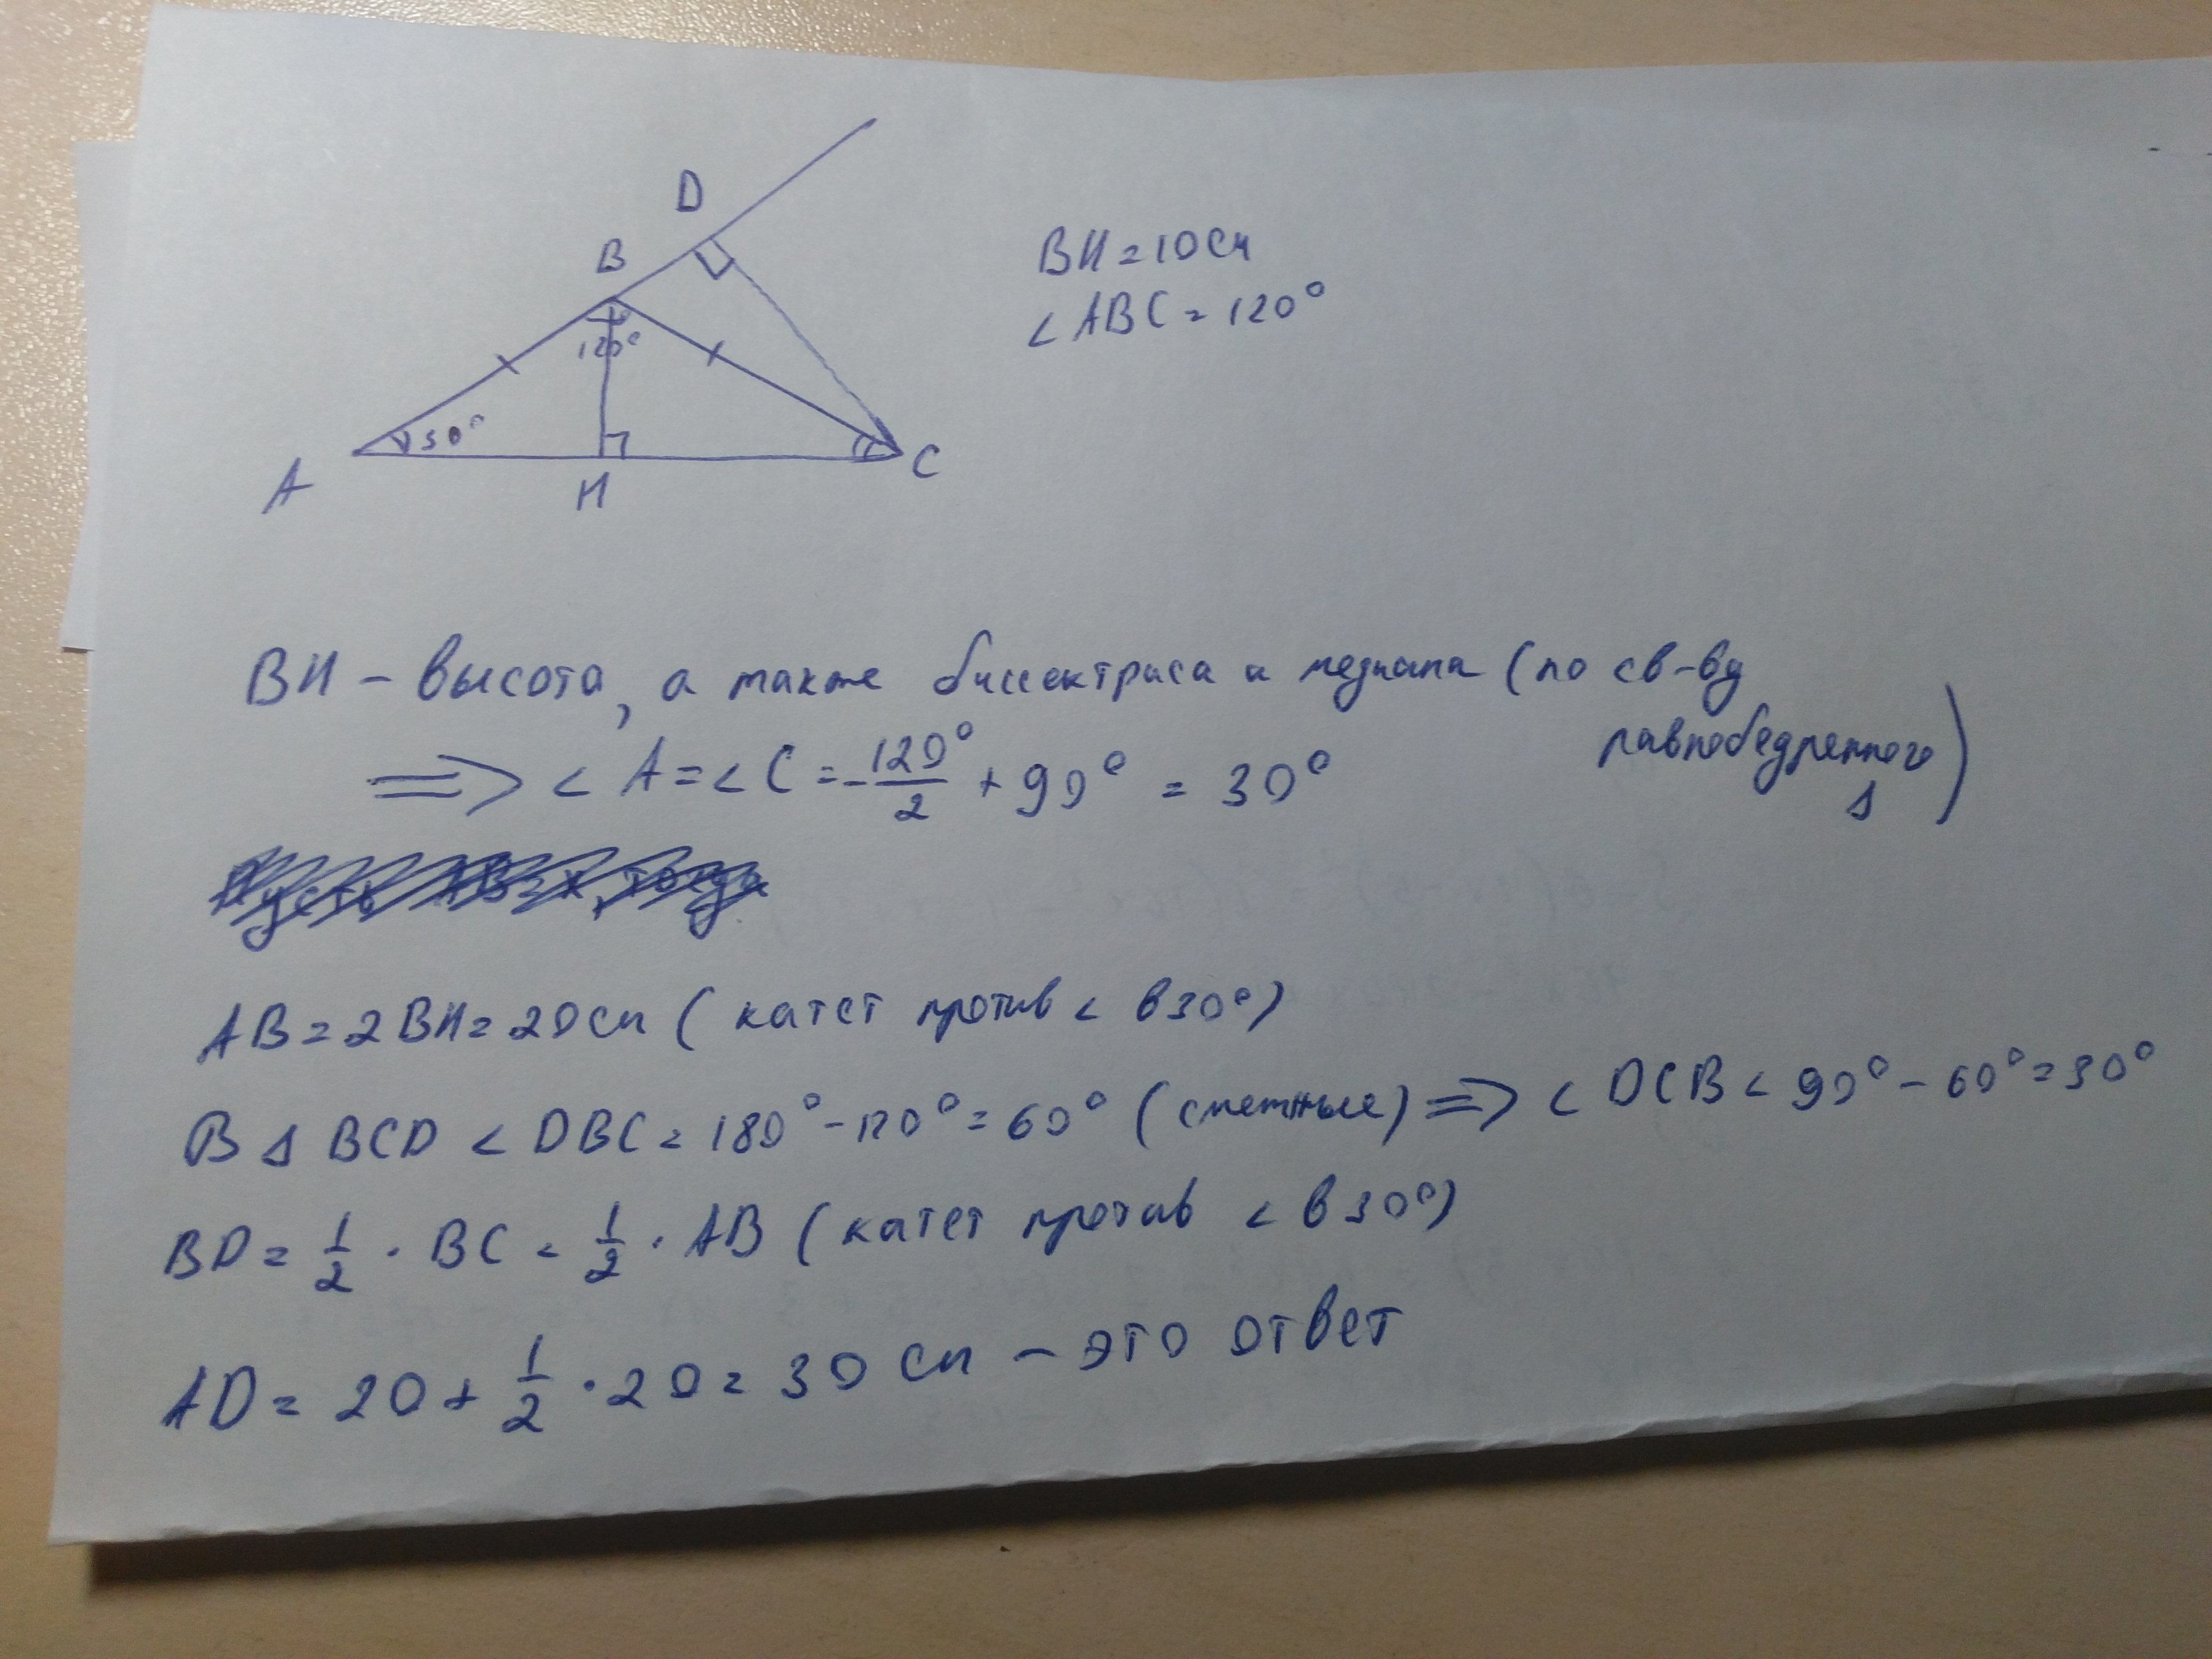 D
B
BH = 10 см
∠ABC = 120°
120°
30°
A
H
C
BH – высота, а также биссектриса и медиана (по св-ву
равнобедренного Δ)
⟹ ∠A = ∠C = -120°/2 + 90° = 30°
Пусть AB = x, тогда
AB = 2BH = 20 см (катет против ∠ в 30°)
В Δ BCD ∠DBC = 180° - 120° = 60° (смежные) ⟹ ∠DCB = 90° - 60° = 30°
BD = 1/2 · BC = 1/2 · AB (катет против ∠ в 30°)
AD = 20 + 1/2 · 20 = 30 см – это ответ